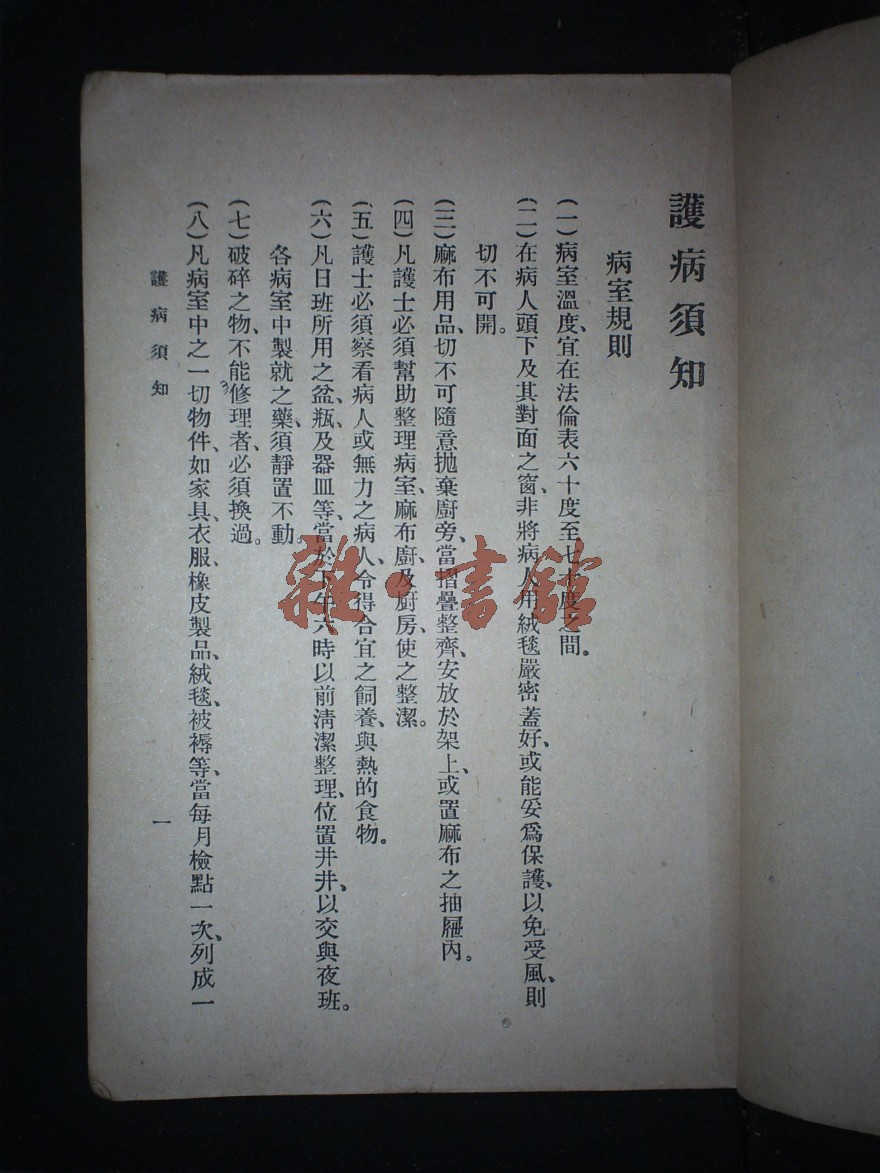 護病須知
病室規則
(一)病室溫度、宜在法倫表六十度至七十度之間。
(二)在病人頭下及其對面之窗、非將病人用絨毯嚴密蓋好、或能妥爲保護、以免受風、則
切不可開。
(三)麻布用品、切不可隨意拋棄廚旁、當摺疊整齊、安放於架上、或置麻布之抽屜內。
(四)凡護士必須幫助整理病室、麻布廚及廚房、使之整潔。
(五)護士必須察看病人或無力之病人、令得合宜之飼養、與熱的食物。
(六)凡日班所用之盆、瓶、及器皿等、當於下午六時以前淸潔整理、位置井井、以交與夜班。
各病室中製就之藥、須靜置不動。
(七)破碎之物、不能修理者、必須換過。
(八)凡病室中之一切物件、如家具、衣服、橡皮製品、絨毯、被褥等、當每月檢點一次、列成一
護病須知
一
雜·書館